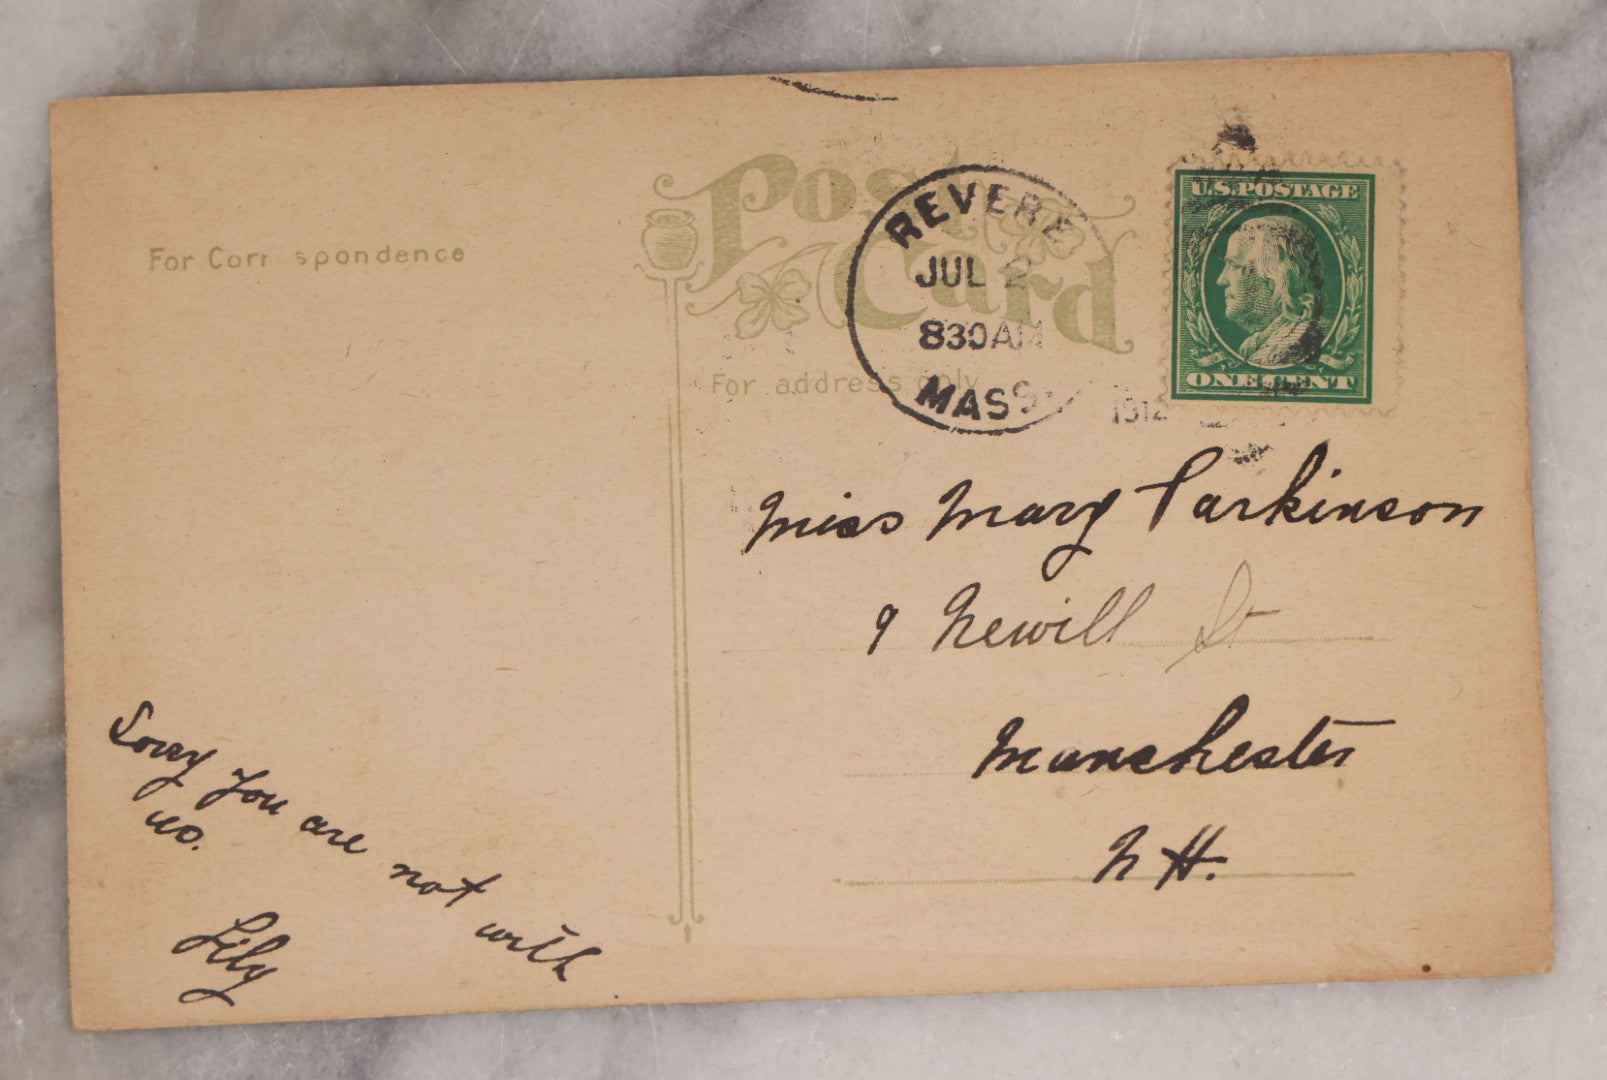 Post
Card
For Corr spondence
For address only
REVERE
JUL 2
830AM
MASS.
1912
U.S. POSTAGE
ONE CENT
Miss Mary Parkinson
9 Newill St
Manchester
N H.
Sorry you are not with
us.
Lily